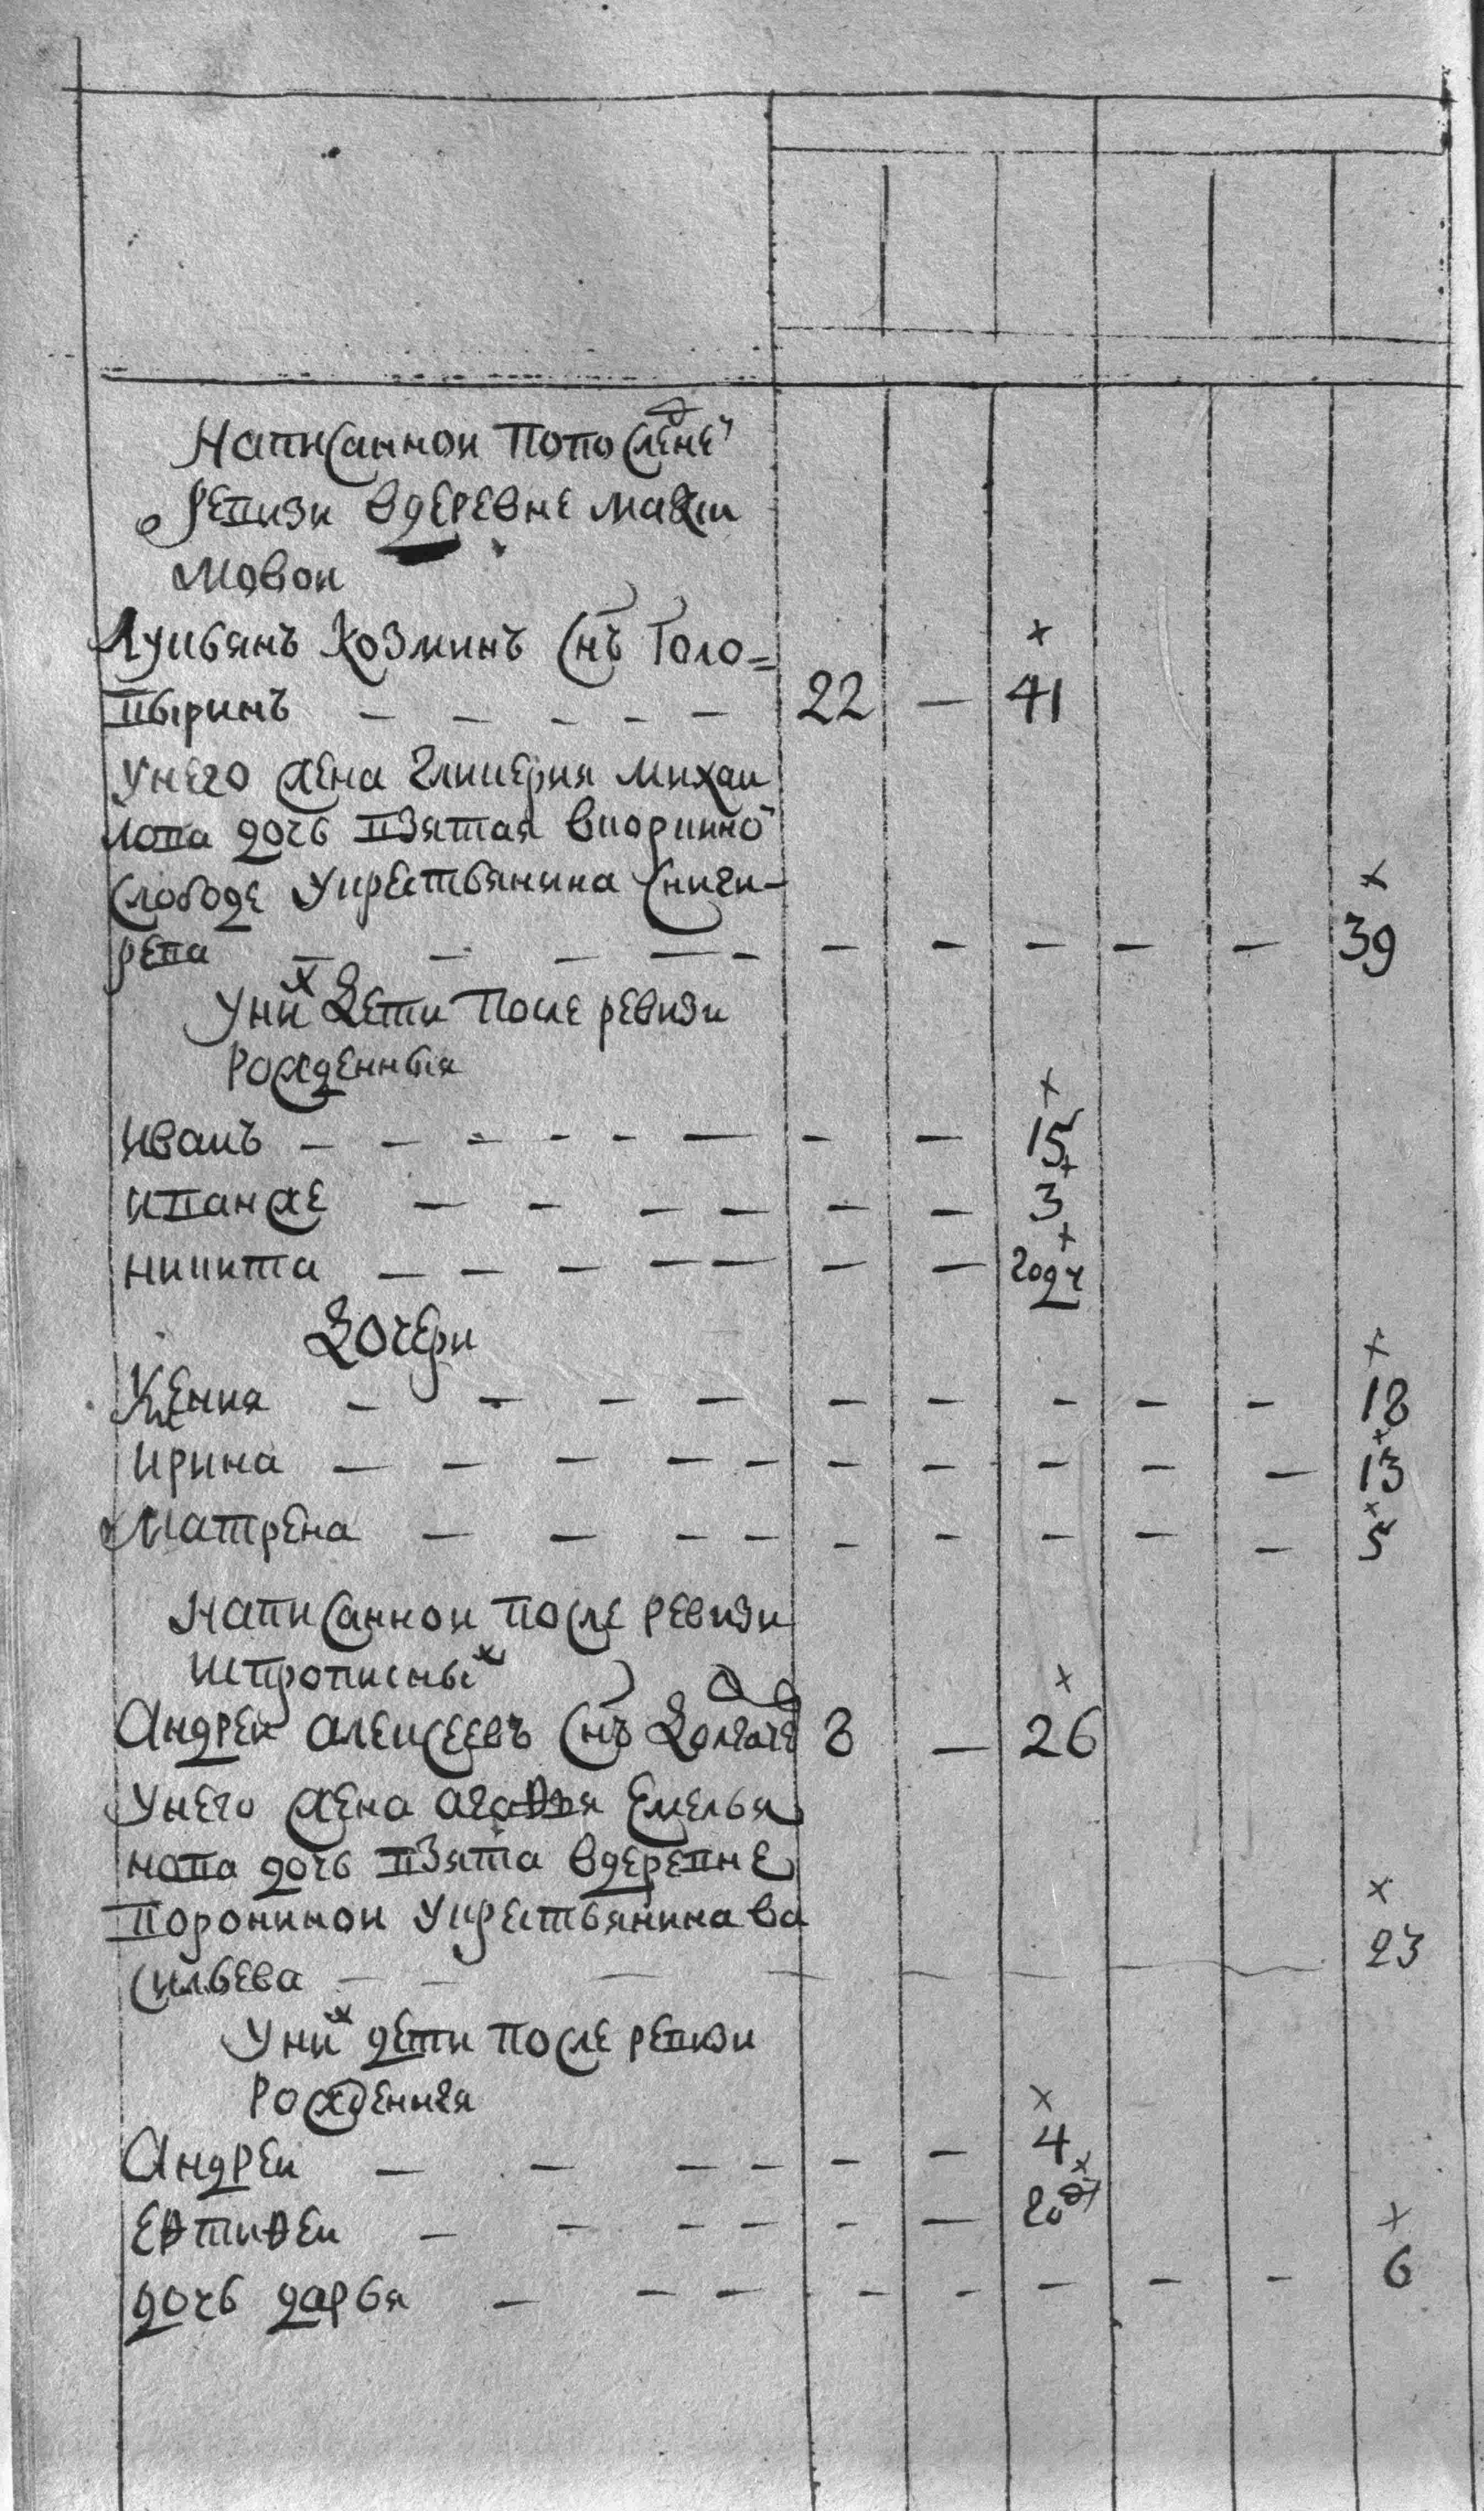 Написаннои попоследнеи
ревизи вдеревне макси
мовои
+
Лукьянъ Козминъ снъ Голо=
выринъ — — — — — 22 — 41
унего жена гликерия михаи
лова дочь взятая вкоринно
слободе укрестьянина сниги- +
рева — — — — — — — — — — 39
уних дети после ревизи
рожденныя +
иванъ — — — — — — — — 15
+
иванже — — — — — — 3
+
никита — — — — — — — году
дочери +
Ксения — — — — — — — — — 18
+
ирина — — — — — — — — — — 13
+
матрена — — — — — — — — — 5
написаннои после ревизи
испрописных +
Андреи алексеевъ снъ 8 — 26
унего жена агафья емелья
нова дочь взята вдеревне
Ворониной укрестьянина ва +
сильева — — — — — — — — 23
уних дети после ревизи
рожденныя +
Андреи — — — — — — 4
+
Евтифеи — — — — — — год +
дочь дарья — — — — — — — — 6